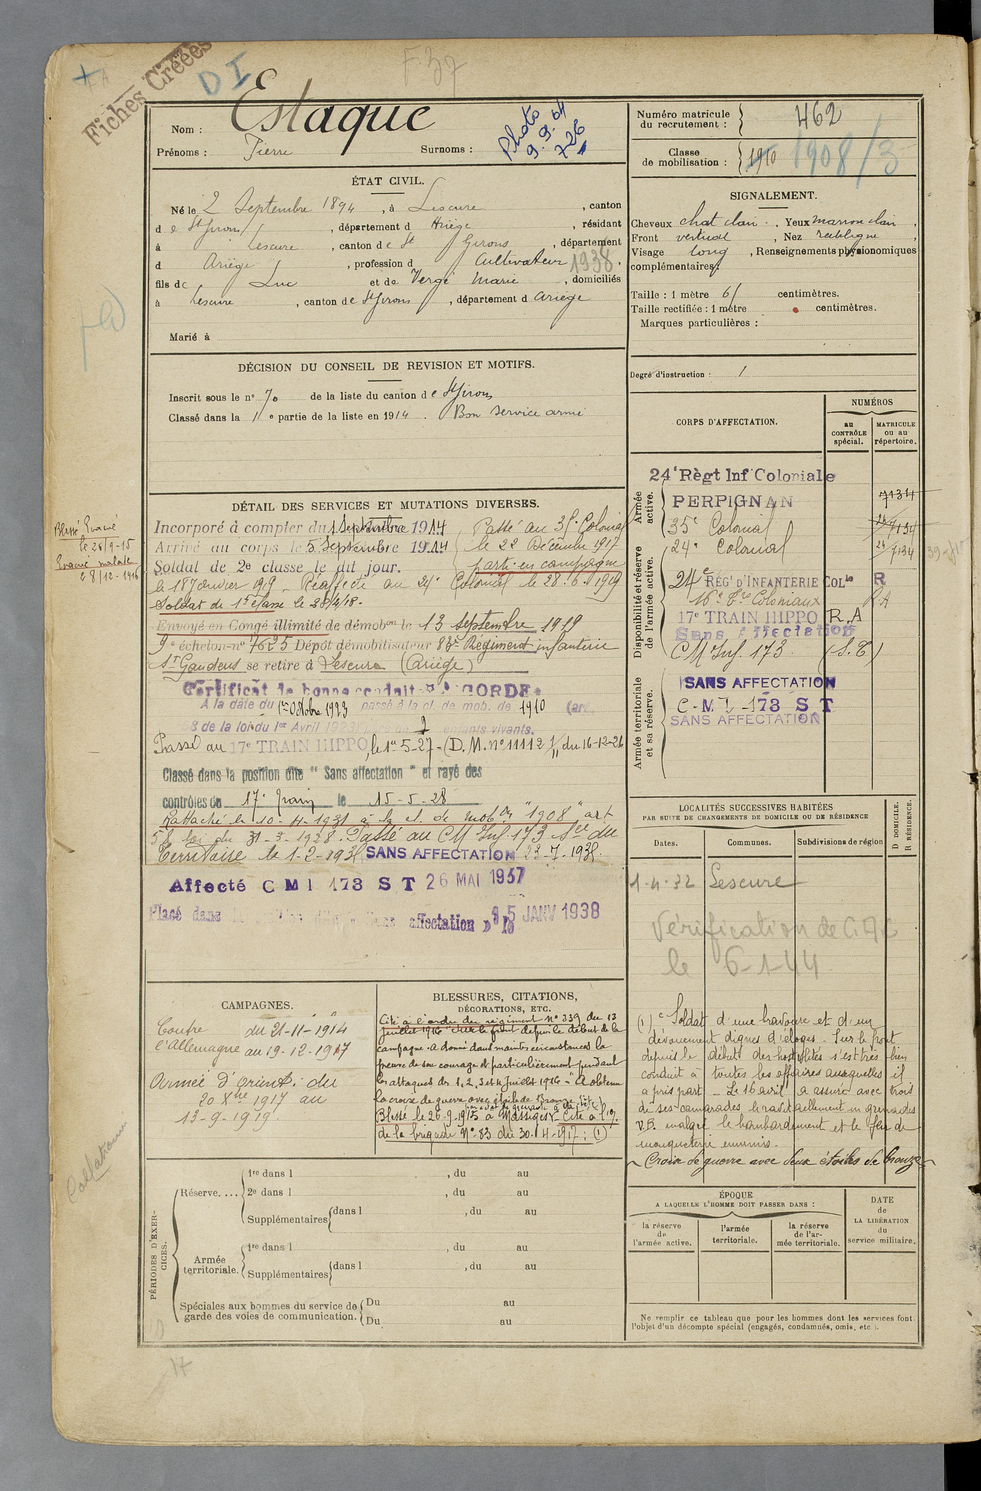 Fiches Créées
D I
F 37
Nom : Estaque
Prénoms : Pierre Surnoms :
Photo
9.9.64
726
Numéro matricule
du recrutement : 462
Classe
de mobilisation : 1910 1908/3
ÉTAT CIVIL.
Né le 2 Septembre 1894, à Lescure, canton
de St Girons, département d Ariège, résidant
à Lescure, canton de St Girons, département
d Ariège, profession d Cultivateur 1938,
fils de Luc et de Vergé Marie, domiciliés
à Lescure, canton de St Girons, département d Ariège
Marié à
SIGNALEMENT.
Cheveux chat clair. Yeux marron clair,
Front vertical, Nez rectiligne,
Visage long, Renseignements physionomiques
complémentaires:
Taille : 1 mètre 61 centimètres.
Taille rectifiée : 1 mètre centimètres.
Marques particulières :
Degré d'instruction : 1
DÉCISION DU CONSEIL DE REVISION ET MOTIFS.
Inscrit sous le n° 70 de la liste du canton de St Girons
Classé dans la 1e partie de la liste en 1914. Bon service armé
CORPS D'AFFECTATION.
NUMÉROS
au
CONTRÔLE
spécial.
MATRICULE
ou au
répertoire.
Armée
active.
24e Règt Inf Coloniale
PERPIGNAN 7134
35e Colonial 7134
24e Colonial 7134
Disponibilité et réserve
de l'armée active.
24e RÉGt D'INFANTERIE COLle R
16e Tre Coloniaux RA
17e TRAIN HIPPO R.A
Sans Affectation
CM Inf. 173 (S.T)
Armée territoriale
et sa réserve.
SANS AFFECTATION
C-M-I-173 S T
SANS AFFECTATION
DÉTAIL DES SERVICES ET MUTATIONS DIVERSES.
Blessé Evacué
le 26-9-15
Evacué malade
le 8-12-1916
Incorporé à compter du 1 Septembre 1914
Arrivé au corps le 5 Septembre 1914
Soldat de 2e classe le dit jour.
Passé au 35e Colonial
le 22 Décembre 1917
parti en campagne
le 18 Janvier 1919 Réaffecté au 24e Colonial le 28.6.1919
Soldat de 1re classe le 25/2/18.
Envoyé en Congé illimité de démobon le 13 septembre 1919
9e échelon n° 4625 Dépôt démobilisateur 83e Régiment infanterie
St Gaudens se retire à Lescure (Ariège)
Certificat de bonne conduite ACCORDÉ
A la date du 1er Octobre 1923 passé à la cl. de mob. de 1910 (art.
58 de la loi du 1er Avril 1923 2 enfants vivants.
Passé au 17e TRAIN HIPPO, le 1er 5-27-(D.M. n° 11112 1/11 du 16-12-26
Classé dans la position dite " Sans affectation " et rayé des
contrôles du 17e Train le 15-5-28
Rattaché le 10-4-1931 à la cl. de mobon "1908" art
58 loi du 31-3-1928. Passé au CM Inf 173 Son du
Territoire le 1-2-193 SANS AFFECTATION 23-7-193
Affecté C M I 173 S T 26 MAI 1937
Placé dans la position dite Sans affectation 15 JANV 1938
LOCALITÉS SUCCESSIVES HABITÉES
PAR SUITE DE CHANGEMENTS DE DOMICILE OU DE RÉSIDENCE
Dates. Communes. Subdivisions de région
D DOMICILE.
R RÉSIDENCE.
1-4-32 Lescure
Vérification de
le 6-1-44
CAMPAGNES.
Contre du 21-11-1914
l'Allemagne au 19-12-1917
Armée d'orient: du
20 Xbre 1917 au
13-9-1919
BLESSURES, CITATIONS,
DÉCORATIONS, ETC.
Cité à l'ordre du régiment N° 339 du 13
juillet 1916 sur le front depuis le début de la
campagne a donné dans maintes circonstances la
preuve de son courage et particulièrement pendant
les attaques des 1, 2, 3 et 4 juillet 1916 - A obtenu
la croix de guerre avec étoile de Bronze
Blessé le 26-9-1915 à Massiges - Cité à l'O.
de la brigade N° 83 du 30-4-1917: (1)
(1) Soldat d'une bravoure et d'un
dévouement dignes d'éloges. Sur le front
depuis le début des hostilités s'est très bien
conduit à toutes les affaires auxquelles il
a pris part - Le 16 avril a assuré avec trois
de ses camarades le ravitaillement en grenades
V.B. malgré le bombardement et le feu de
mousqueterie ennemis.
Croix de guerre avec deux étoiles de bronze
PÉRIODES D'EXER-
CICES.
Réserve.... 1re dans l , du au
2e dans l , du au
Supplémentaires dans l , du au
Armée
territoriale. 1re dans l , du au
Supplémentaires dans l , du au
Spéciales aux hommes du service de
garde des voies de communication. Du au
Du au
ÉPOQUE
A LAQUELLE L'HOMME DOIT PASSER DANS :
la réserve
de
l'armée active.
l'armée
territoriale.
la réserve
de l'ar-
mée territoriale.
DATE
de
LA LIBÉRATION
du
service militaire.
Ne remplir ce tableau que pour les hommes dont les services font
l'objet d'un décompte spécial (engagés, condamnés, omis, etc.).